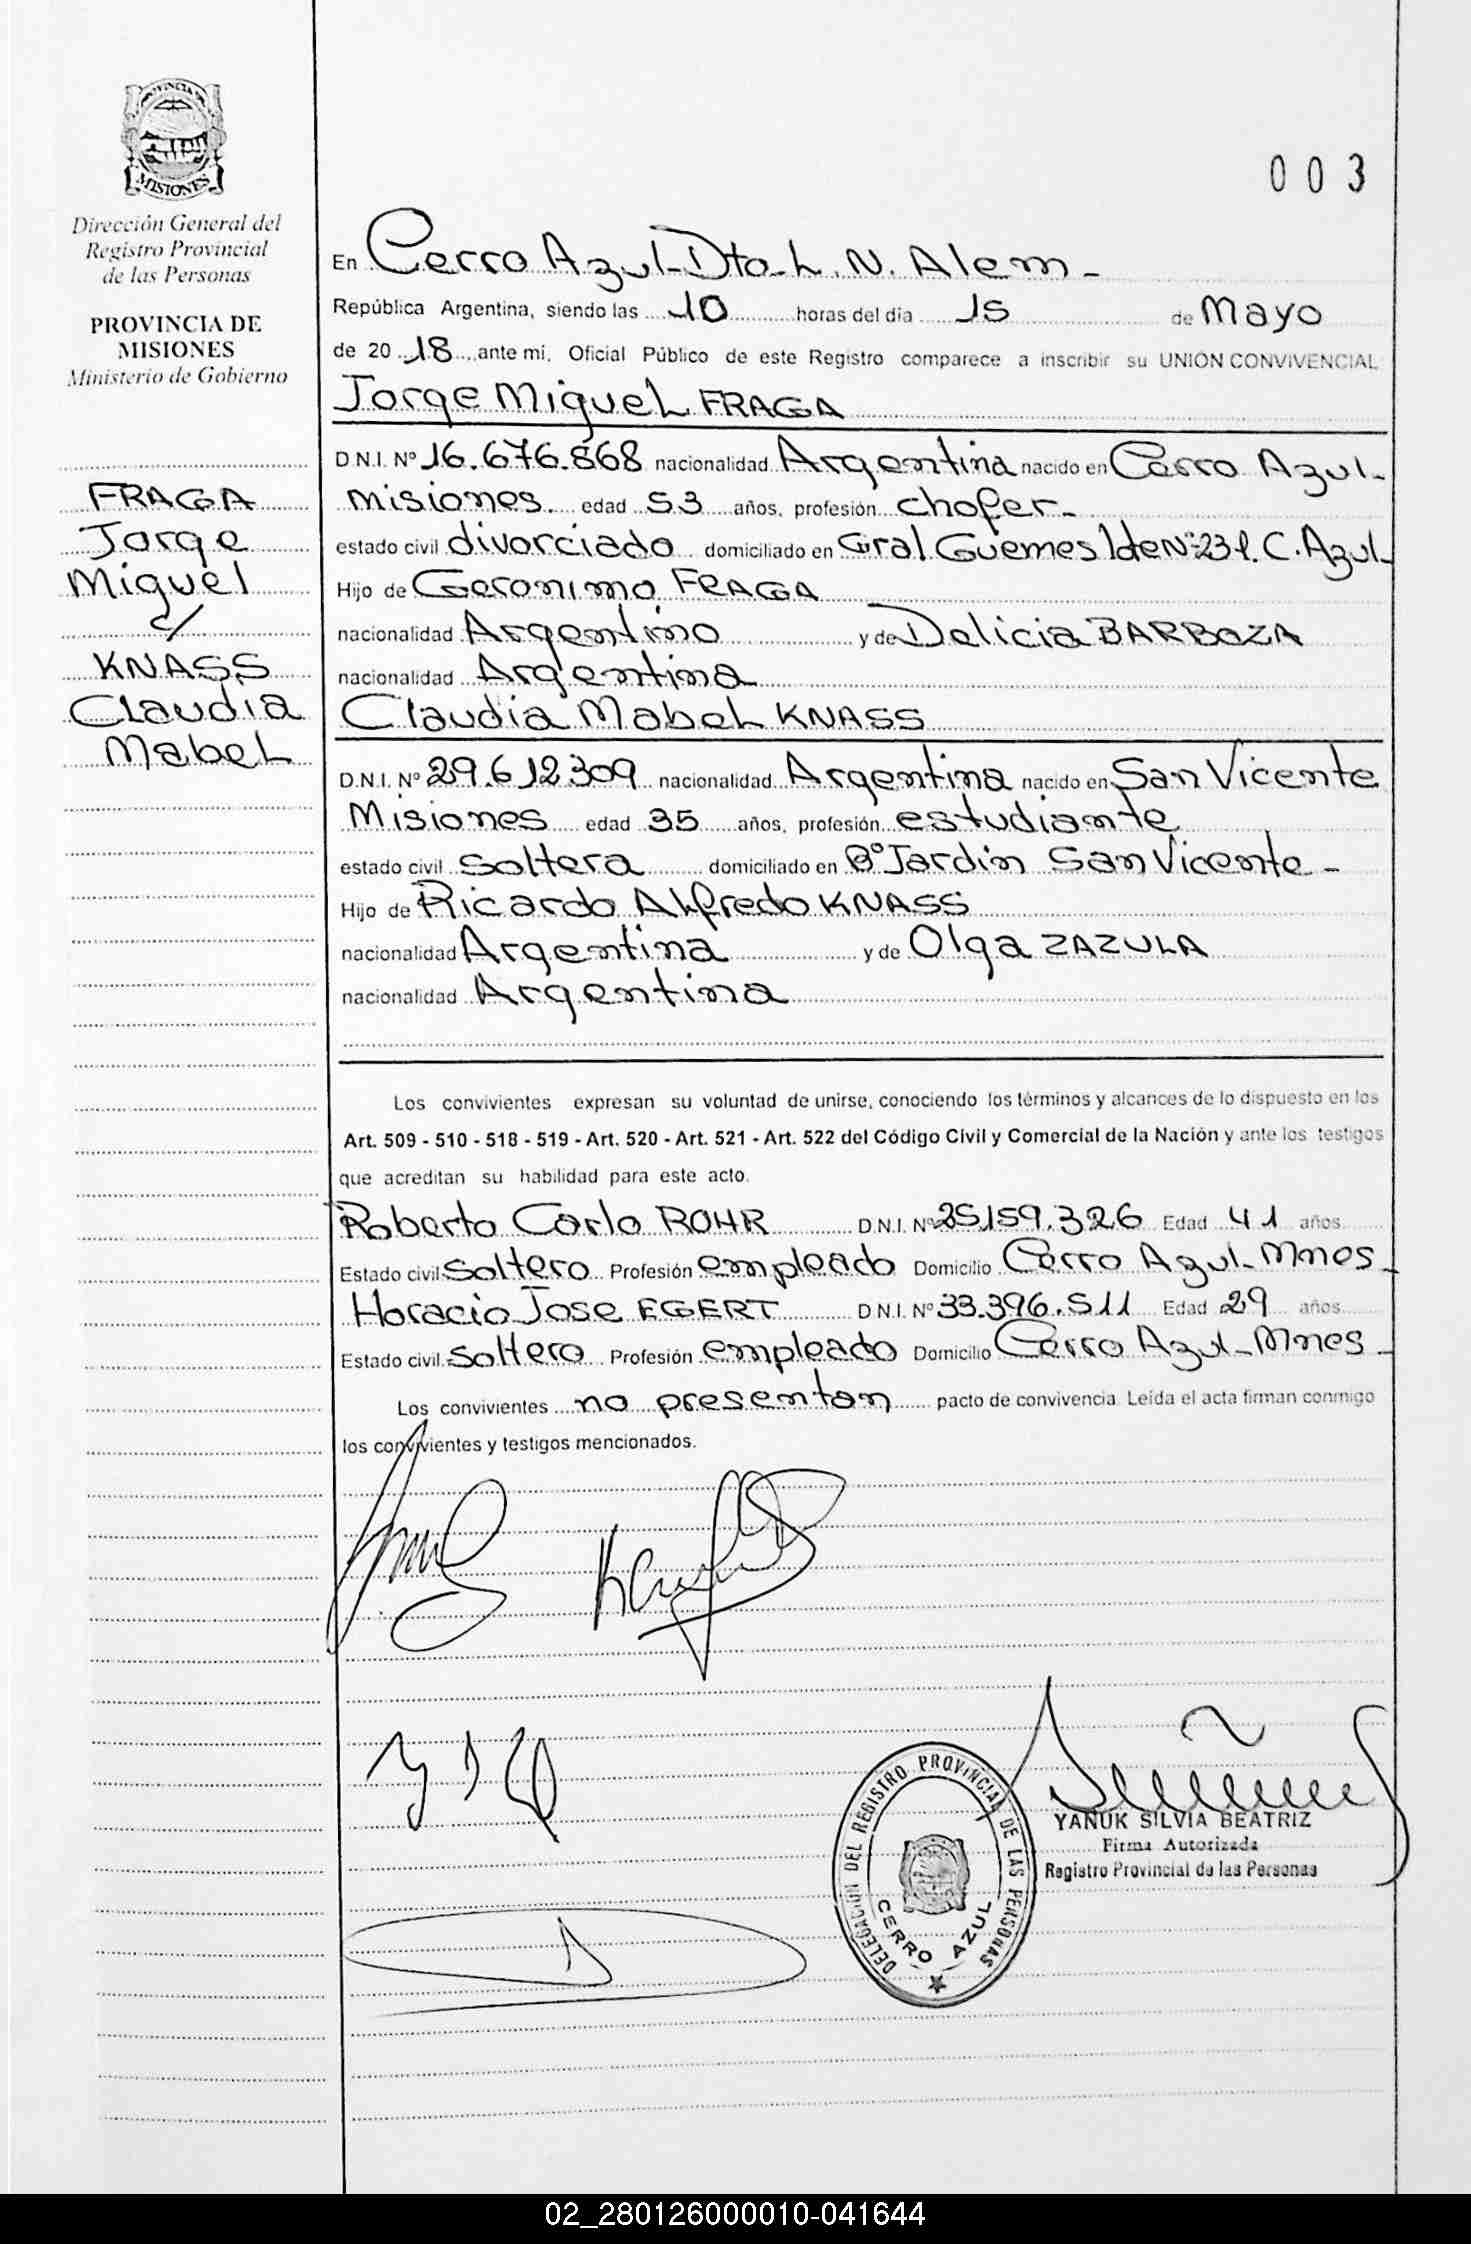 PROVINCIA DE
MISIONES
Dirección General del
Registro Provincial
de las Personas
PROVINCIA DE
MISIONES
Ministerio de Gobierno
FRAGA
Jorge
Miguel
c/
KNASS
Claudia
Mabel
003
En Cerro Azul-Dto-L.N. Alem-
República Argentina, siendo las 10 horas del día 15 de Mayo
de 2018, ante mí, Oficial Público de este Registro comparece a inscribir su UNIÓN CONVIVENCIAL
Jorge Miguel FRAGA
D.N.I. Nº 16.676.868 nacionalidad Argentina nacido en Cerro Azul-
Misiones. edad 53 años, profesión chofer-
estado civil divorciado domiciliado en Gral. Guemes lote Nº 231. C. Azul-
Hijo de Geronimo FRAGA
nacionalidad Argentino y de Delicia BARBOZA
nacionalidad Argentina
Claudia Mabel KNASS
D.N.I. Nº 29.612.309 nacionalidad Argentina nacido en San Vicente
Misiones edad 35 años, profesión estudiante
estado civil Soltera domiciliado en Bº Jardin San Vicente-
Hijo de Ricardo Alfredo KNASS
nacionalidad Argentina y de Olga ZAZULA
nacionalidad Argentina
Los convivientes expresan su voluntad de unirse, conociendo los términos y alcances de lo dispuesto en los
Art. 509 - 510 - 518 - 519 - Art. 520 - Art. 521 - Art. 522 del Código Civil y Comercial de la Nación y ante los testigos
que acreditan su habilidad para este acto.
Roberto Carlo ROHR D.N.I. Nº 25.159.326 Edad 41 años
Estado civil Soltero Profesión empleado Domicilio Cerro Azul-Mnes-
Horacio Jose EGERT D.N.I. Nº 33.396.511 Edad 29 años
Estado civil Soltero Profesión empleado Domicilio Cerro Azul-Mnes-
Los convivientes no presentan pacto de convivencia. Leída el acta firman conmigo
los convivientes y testigos mencionados.
DELEGACION DEL REGISTRO PROVINCIAL DE LAS PERSONAS
CERRO AZUL
YAÑUK SILVIA BEATRIZ
Firma Autorizada
Registro Provincial de las Personas
02_280126000010-041644